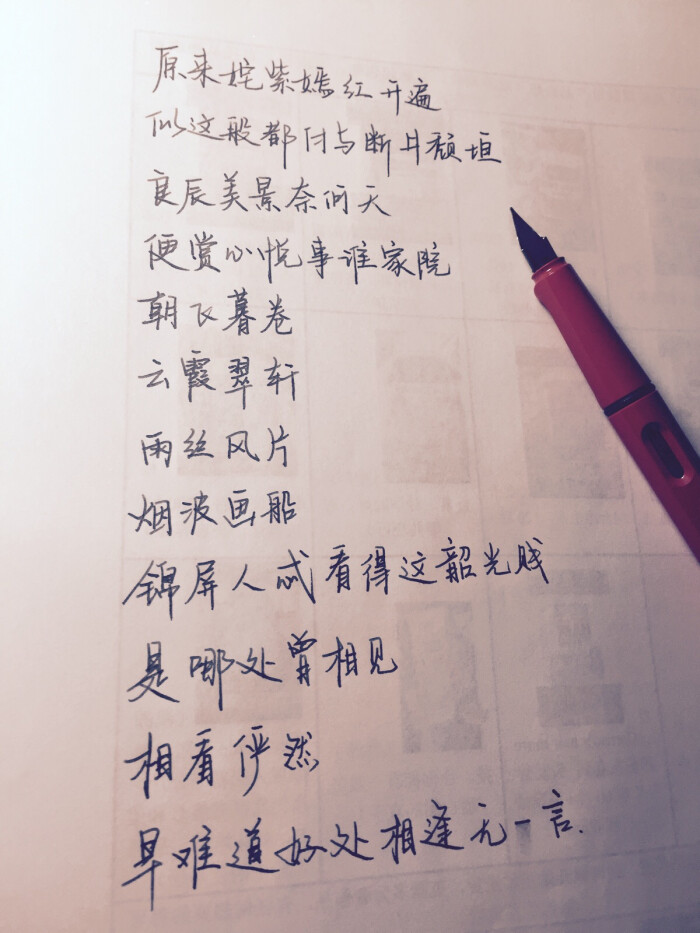 原来姹紫嫣红开遍
似这般都付与断井颓垣
良辰美景奈何天
便赏心悦事谁家院
朝飞暮卷
云霞翠轩
雨丝风片
烟波画船
锦屏人忒看得这韶光贱
是哪处曾相见
相看俨然
早难道好处相逢无一言.